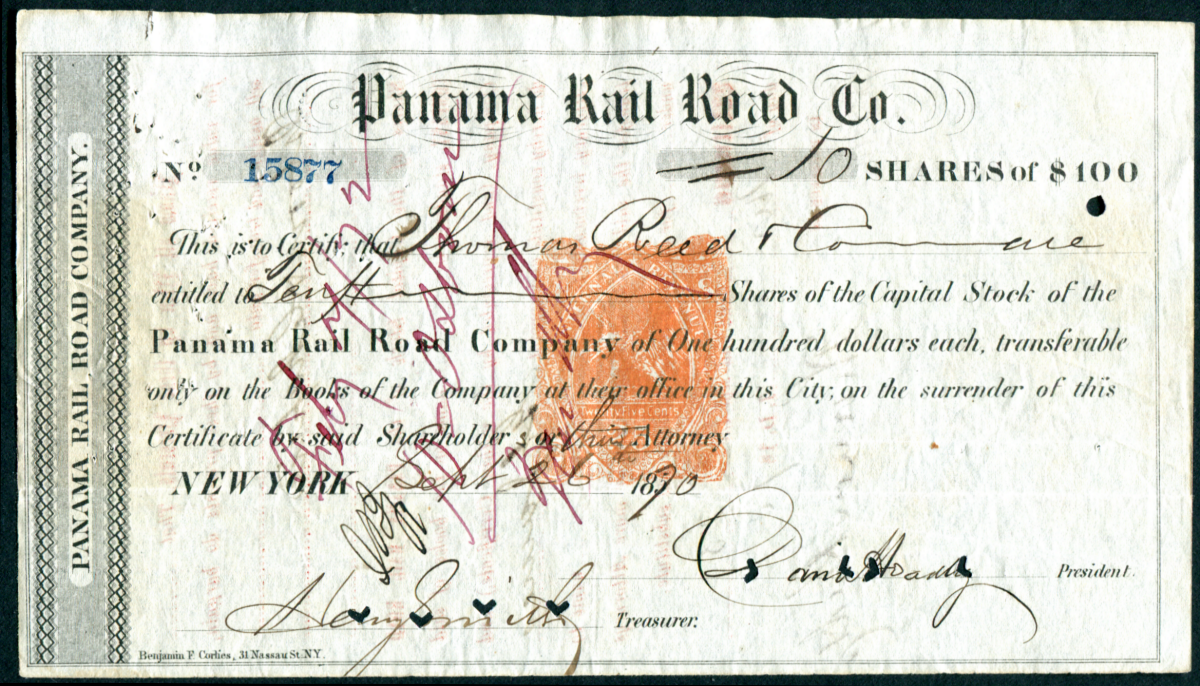 Panama Rail Road Co.
No. 15877 10 SHARES of $100
This is to Certify, that Thomas Reed & Co are
entitled to Ten Shares of the Capital Stock of the
Panama Rail Road Company of One hundred dollars each, transferable
only on the Books of the Company at their office in this City, on the surrender of this
Certificate by said Shareholders or their Attorney
NEW YORK Sept 26 1870
David Hoadley President.
Henry Smith Treasurer.
Benjamin F. Corlies, 31 Nassau St. N.Y.
PANAMA RAIL ROAD COMPANY.
Twenty Five Cents